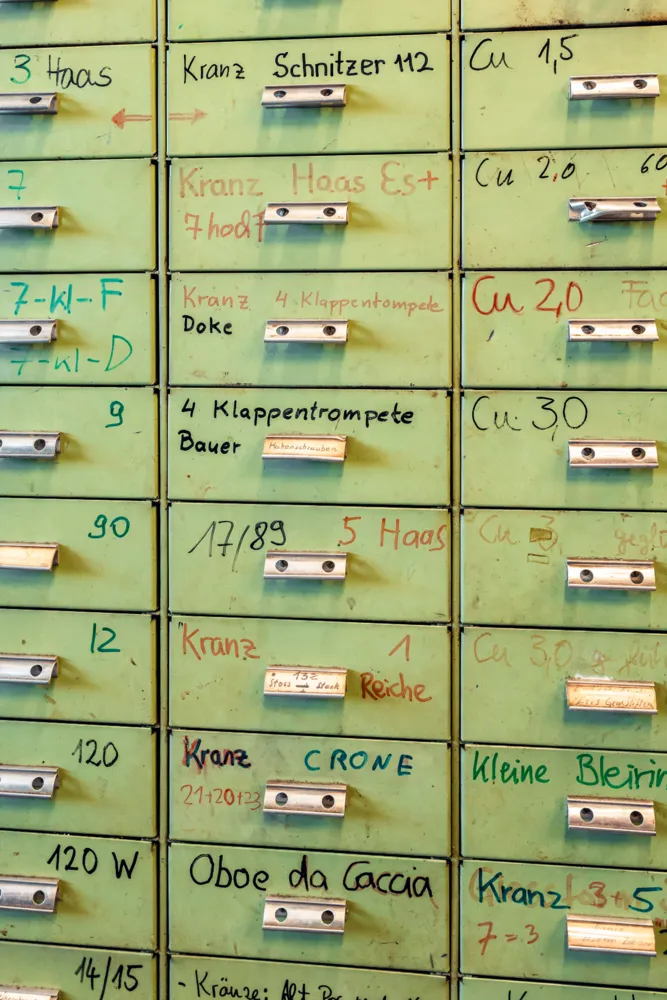 3 Haas
7
7-kl-F
7-kl-D
9
90
12
120
120 W
14/15
Kranz Schnitzer 112
Kranz Haas Es+
7 hod7
Kranz 4 Klappentompete
Doke
4 Klappentrompete
Bauer
Hakenschrauben
17/89 5 Haas
Kranz 1
132
Stoss Stack
Reiche
Kranz CRONE
21+20+23
Oboe da Caccia
- Kränze: Alt
Cu 1,5
Cu 2,0 60
Cu 2,0
Cu 3,0
Cu 3
Cu 3,0
Kleine Bleirin
Kranz 3+5
7=3